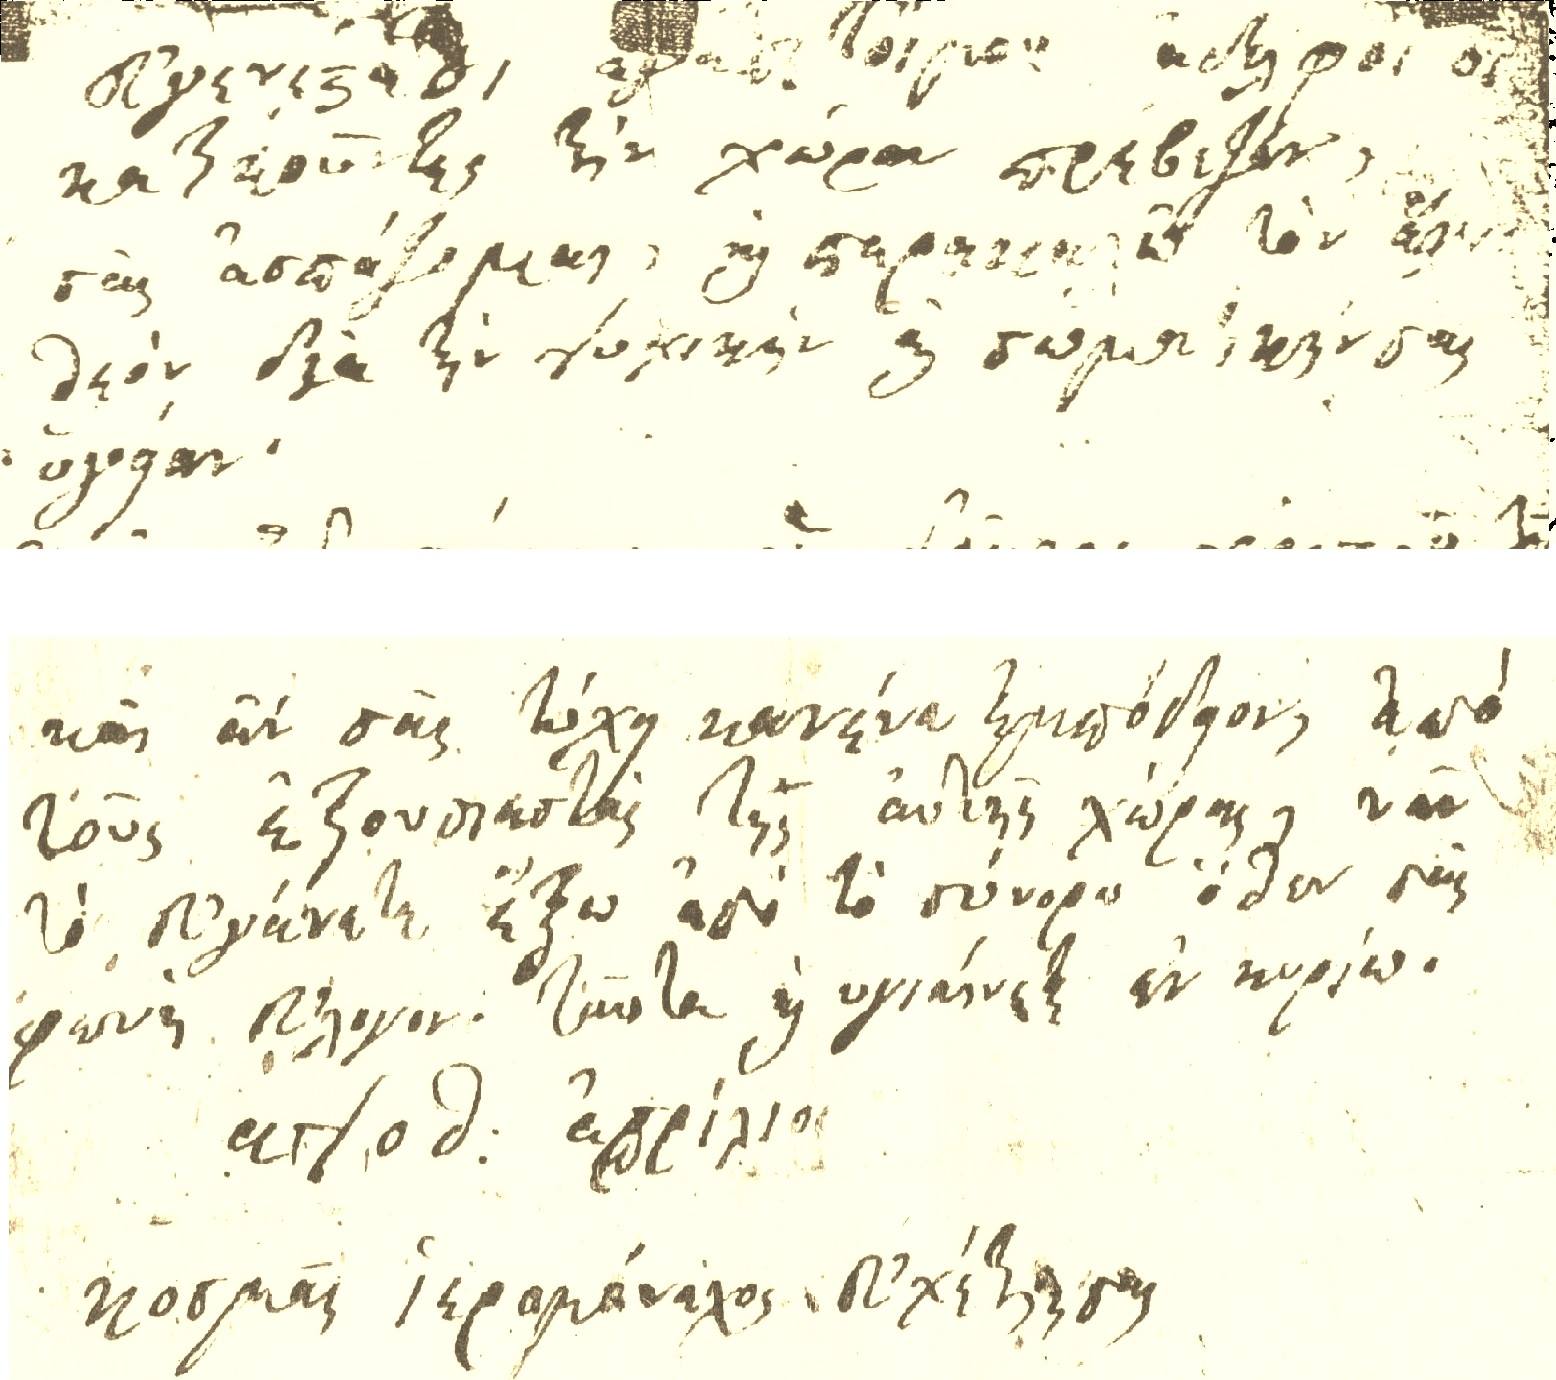 εὐγενέστατοι ἀγαπητοί μου ἀδελφοί οἱ
κατοικοῦντες τὴν χώραν πρέβεζαν,
σᾶς ἀσπάζομαι, καὶ παρακαλῶ τὸν ἅγιον
θεόν διὰ τὴν ψυχικὴν καὶ σωματικήν σας
ὑγείαν.
καὶ ἄν σᾶς τύχῃ κανένα ἐμπόδιον, ἀπό
τοῦς ἐξουσιαστὰς τῆς αὐτῆς χώρας, νὰ
τὸ εὐγάνετε ἔξω ἀπὸ τὸ σύνορο ὅθεν σᾶς
φανῇ εὔλογον. ταῦτα καὶ ὑγιαίνετε ἐν κυρίῳ.
αψοθ: ἀπρίλιος
κοσμᾶς ἱερομόναχος εὐχέτης σας